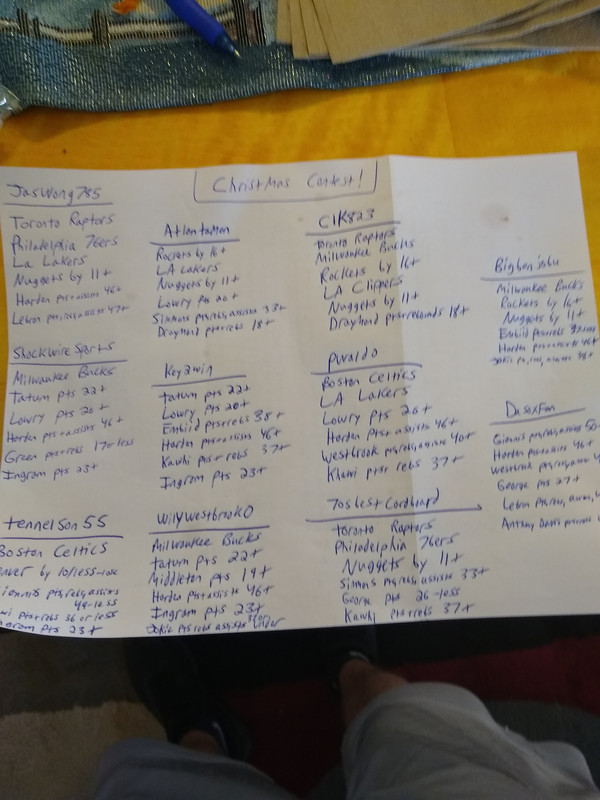 Christmas Contest!
JasWong785
Toronto Raptors
Philadelphia 76ers
La Lakers
Nuggets by 11+
Harden pts+assists 46+
Lebron pts,reg,assists 47+
Atlantamon
Rockets by 16+
LA Lakers
Nuggets by 11+
Lowry pts 20+
Simmons pts,reb,assists 33+
Draymond pts+rebs 18+
C1K823
Toronto Raptors
Milwaukee Bucks
Rockets by 16+
LA Clippers
Nuggets by 11+
Draymond pts+rebounds 18+
Milwaukee Bucks
Rockets by 16+
Nuggets by 11+
Embiid pts+rebs
Harden pts+assists 46+
38+
Shockwire Sports
Milwaukee Bucks
Tatum pts 22+
Lowry pts 20+
Harden pts+assists 46+
Green pts+rebs 17 or less
Ingram pts 23+
Key2win
Tatum pts 22+
Lowry pts 20+
Embiid pts+rebs 38+
Harden pts+assists 46+
Kawhi pts+rebs 37+
Ingram pts 23+
pwaldo
Boston Celtics
LA Lakers
Lowry pts 20+
Harden pts+assists 46+
Westbrook pts,reb,assists 40+
Khawi pts+ rebs 37+
DasoxFan
Giannis pts,reb,assists 50+
Harden pts+assists 46+
Westbrook pts,reb,assists
George pts 27+
Lebron pts,reb,
Anthony Davis
tennelson55
Boston Celtics
by 10/less-lose
pts,reb,assists
49-less
pts+rebs 36 or less
pts 23+
WillyWestbrook0
Milwaukee Bucks
Tatum pts 22+
Middleton pts 19+
Harden pts+assists 46+
Ingram pts 23+
Jokic pts rebs assists under
Toronto Raptors
Philadelphia 76ers
Nuggets by 11+
Simmons pts,reb,assists 33+
George pts 26-less
Kawhi pts+rebs 37+